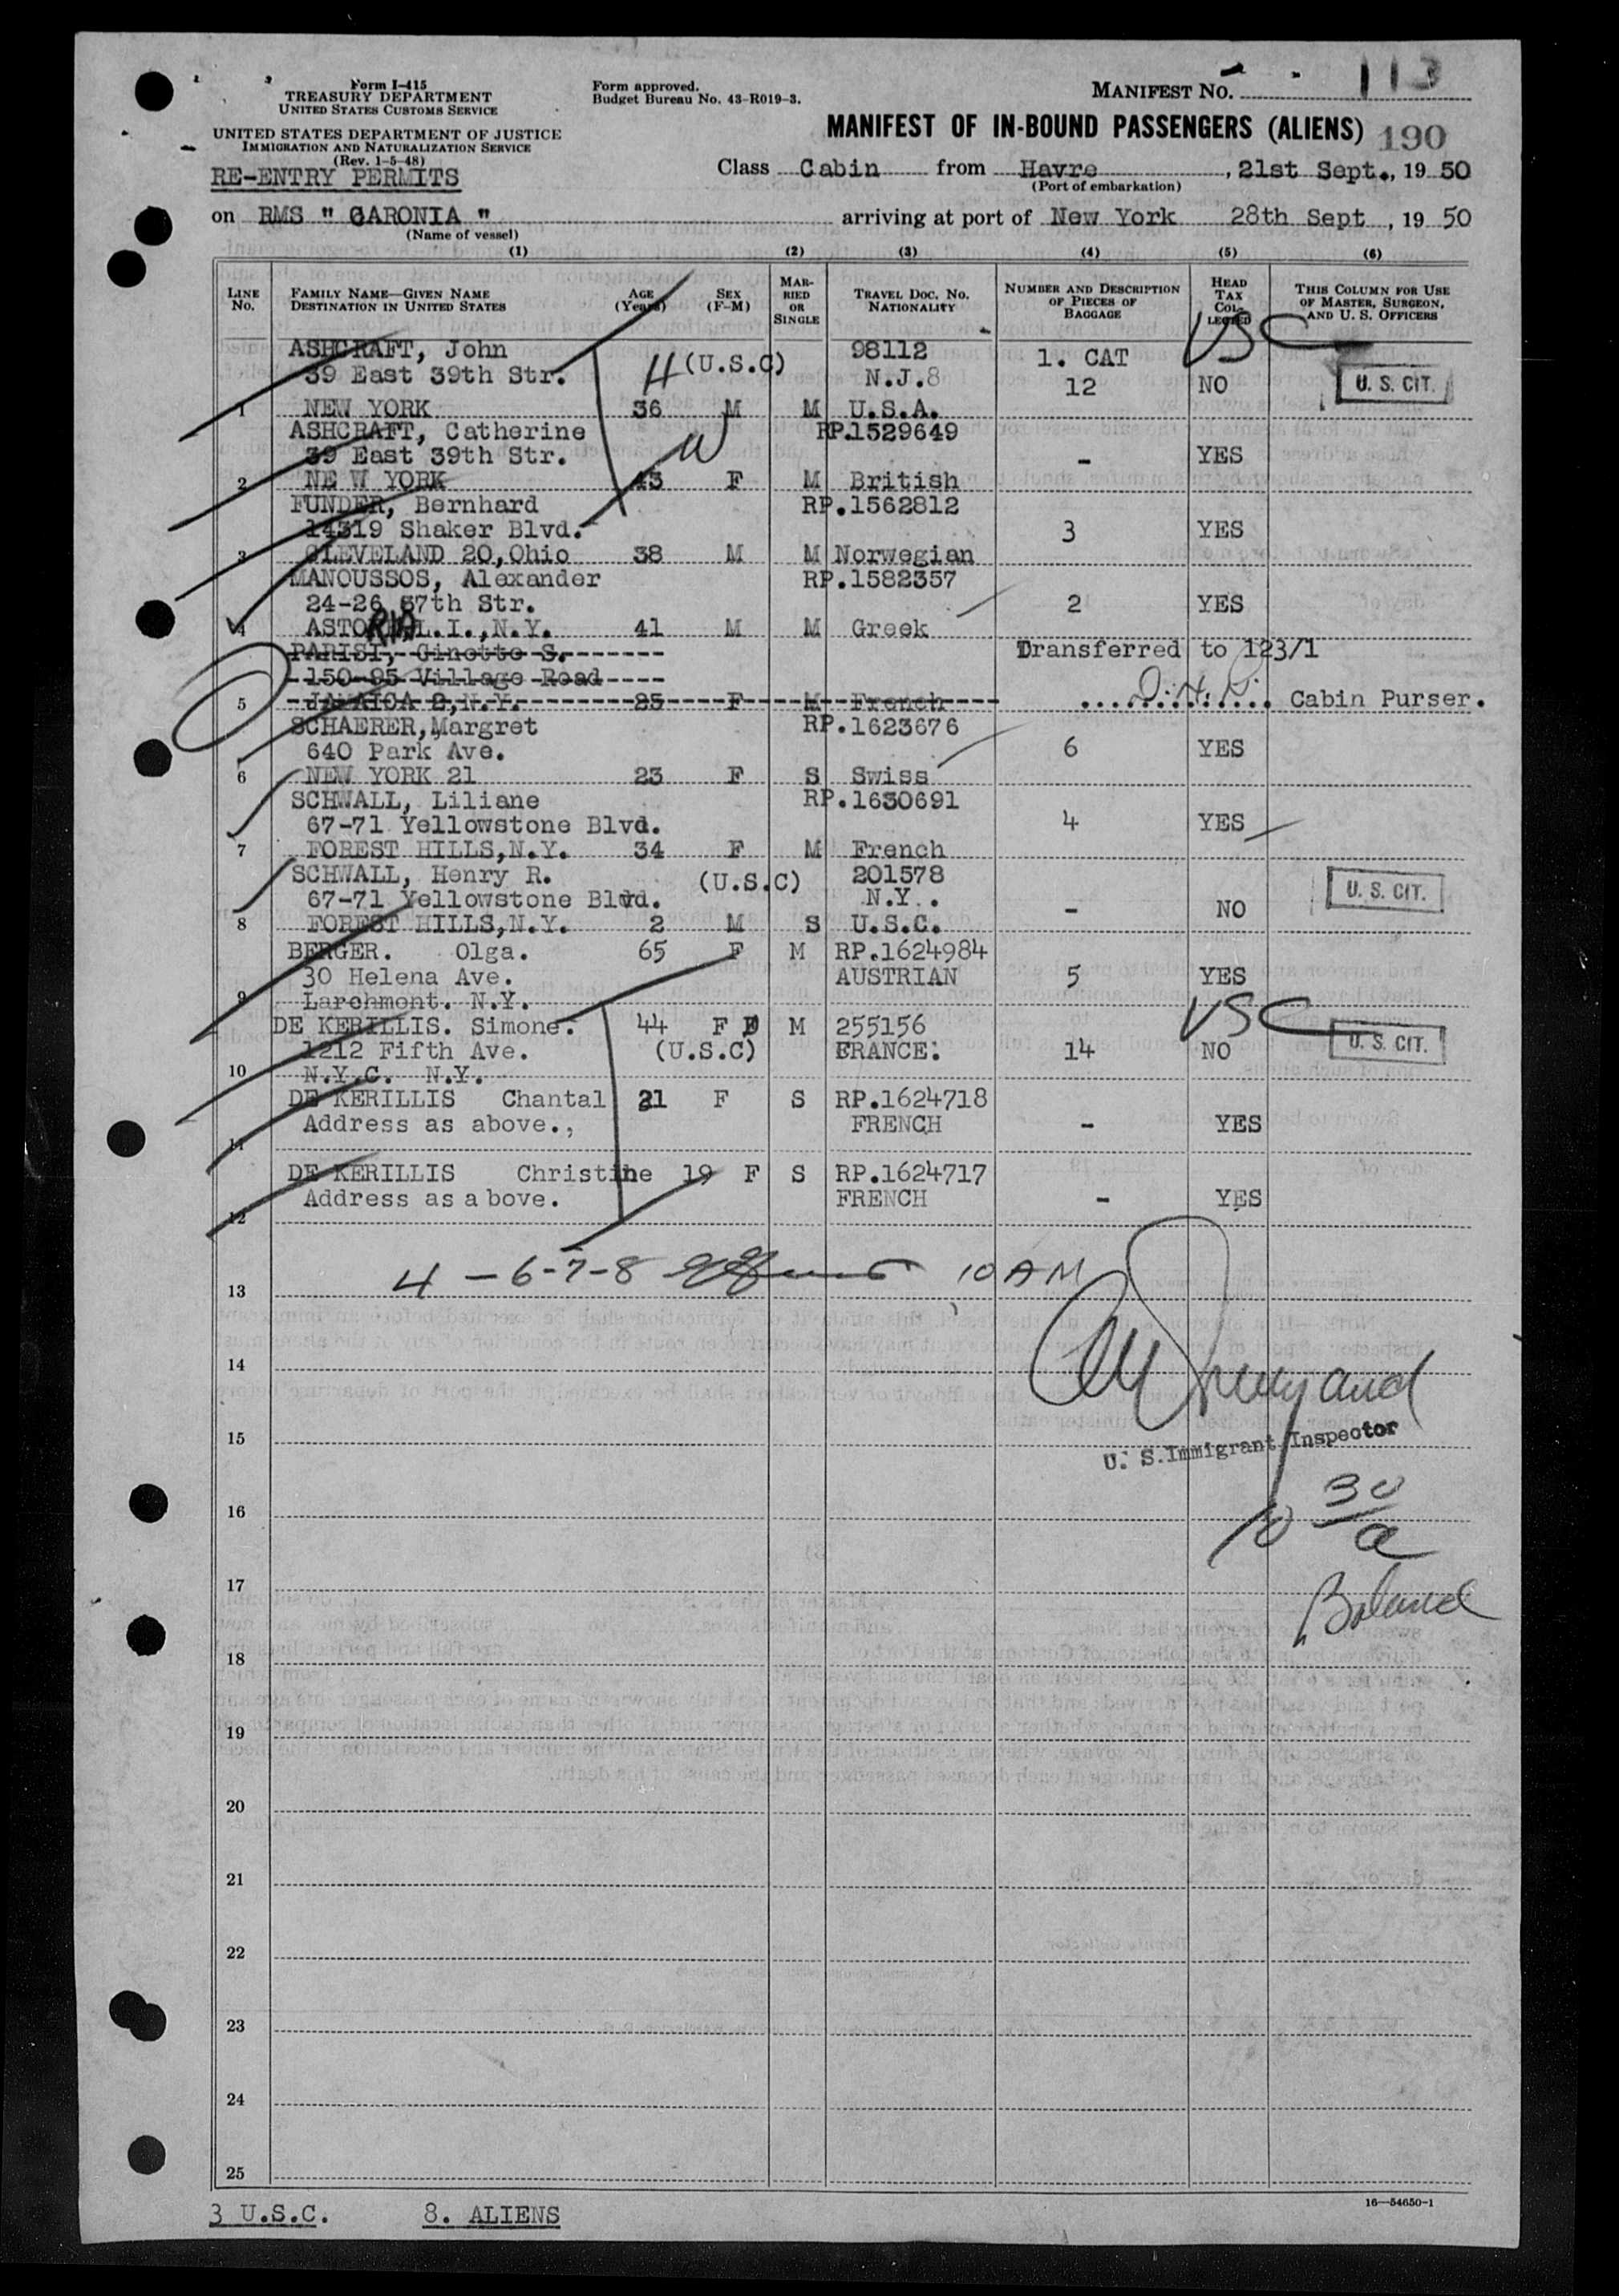 Form I-415
TREASURY DEPARTMENT
UNITED STATES CUSTOMS SERVICE
UNITED STATES DEPARTMENT OF JUSTICE
IMMIGRATION AND NATURALIZATION SERVICE
(Rev. 1-5-48)
RE-ENTRY PERMITS
Form approved.
Budget Bureau No. 43-R019-3.
MANIFEST NO. 113
MANIFEST OF IN-BOUND PASSENGERS (ALIENS) 190
Class Cabin from Havre, 21st Sept., 19 50
(Port of embarkation)
on RMS " CARONIA " arriving at port of New York 28th Sept, 19 50
(Name of vessel)
(1) (2) (3) (4) (5) (6)
LINE NO. FAMILY NAME—GIVEN NAME DESTINATION IN UNITED STATES AGE (Years) SEX (F-M) MARRIED OR SINGLE TRAVEL DOC. NO. NATIONALITY NUMBER AND DESCRIPTION OF PIECES OF BAGGAGE HEAD TAX COLLECTED THIS COLUMN FOR USE OF MASTER, SURGEON, AND U. S. OFFICERS
USC
ASHCRAFT, John (U.S.C) 98112 1. CAT
39 East 39th Str. N.J.8 12 NO U. S. CIT.
1 NEW YORK 36 M M U.S.A.
ASHCRAFT, Catherine RP.1529649
39 East 39th Str. - YES
2 NE W YORK 43 F M British
FUNDER, Bernhard RP.1562812
14319 Shaker Blvd. 3 YES
3 CLEVELAND 20,Ohio 38 M M Norwegian
MANOUSSOS, Alexander RP.1582357
24-26 37th Str. 2 YES
4 ASTORIA L.I.,N.Y. 41 M M Greek
PARISI, Ginette S. Transferred to 123/1
150-95 Village Road
5 JAMAICA 2,N.Y. 25 F M French Cabin Purser.
SCHAERER,Margret RP.1623676
640 Park Ave. 6 YES
6 NEW YORK 21 23 F S Swiss
SCHWALL, Liliane RP.1630691
67-71 Yellowstone Blvd. 4 YES
7 FOREST HILLS,N.Y. 34 F M French
SCHWALL, Henry R. (U.S.C) 201578
67-71 Yellowstone Blvd. N.Y. - NO U. S. CIT.
8 FOREST HILLS,N.Y. 2 M S U.S.C.
BERGER. Olga. 65 F M RP.1624984
30 Helena Ave. AUSTRIAN 5 YES
9 Larchmont. N.Y. USC
DE KERILLIS. Simone. 44 F M 255156
1212 Fifth Ave. (U.S.C) FRANCE. 14 NO U. S. CIT.
10 N.Y.C. N.Y.
DE KERILLIS Chantal 21 F S RP.1624718
Address as above., FRENCH - YES
11
DE KERILLIS Christine 19 F S RP.1624717
Address as above. FRENCH - YES
12
4 - 6-7-8 10 AM
13
14
15
U. S. Immigrant Inspector
16
10 30/a
17
Boland
18
19
20
21
22
23
24
25
3 U.S.C. 8. ALIENS
16—54650-1